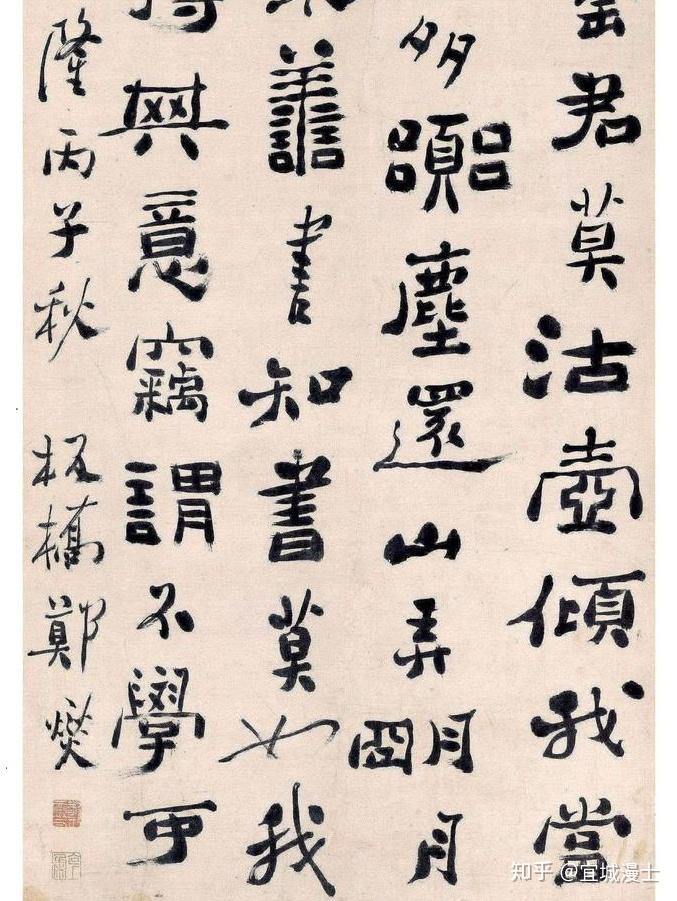 君莫沽壺傾我當
多囂塵還山弄朙月
譱書知書莫如我
得其意竊謂不學可
隆丙子秋 板橋鄭燮
知乎 @宜城漫士